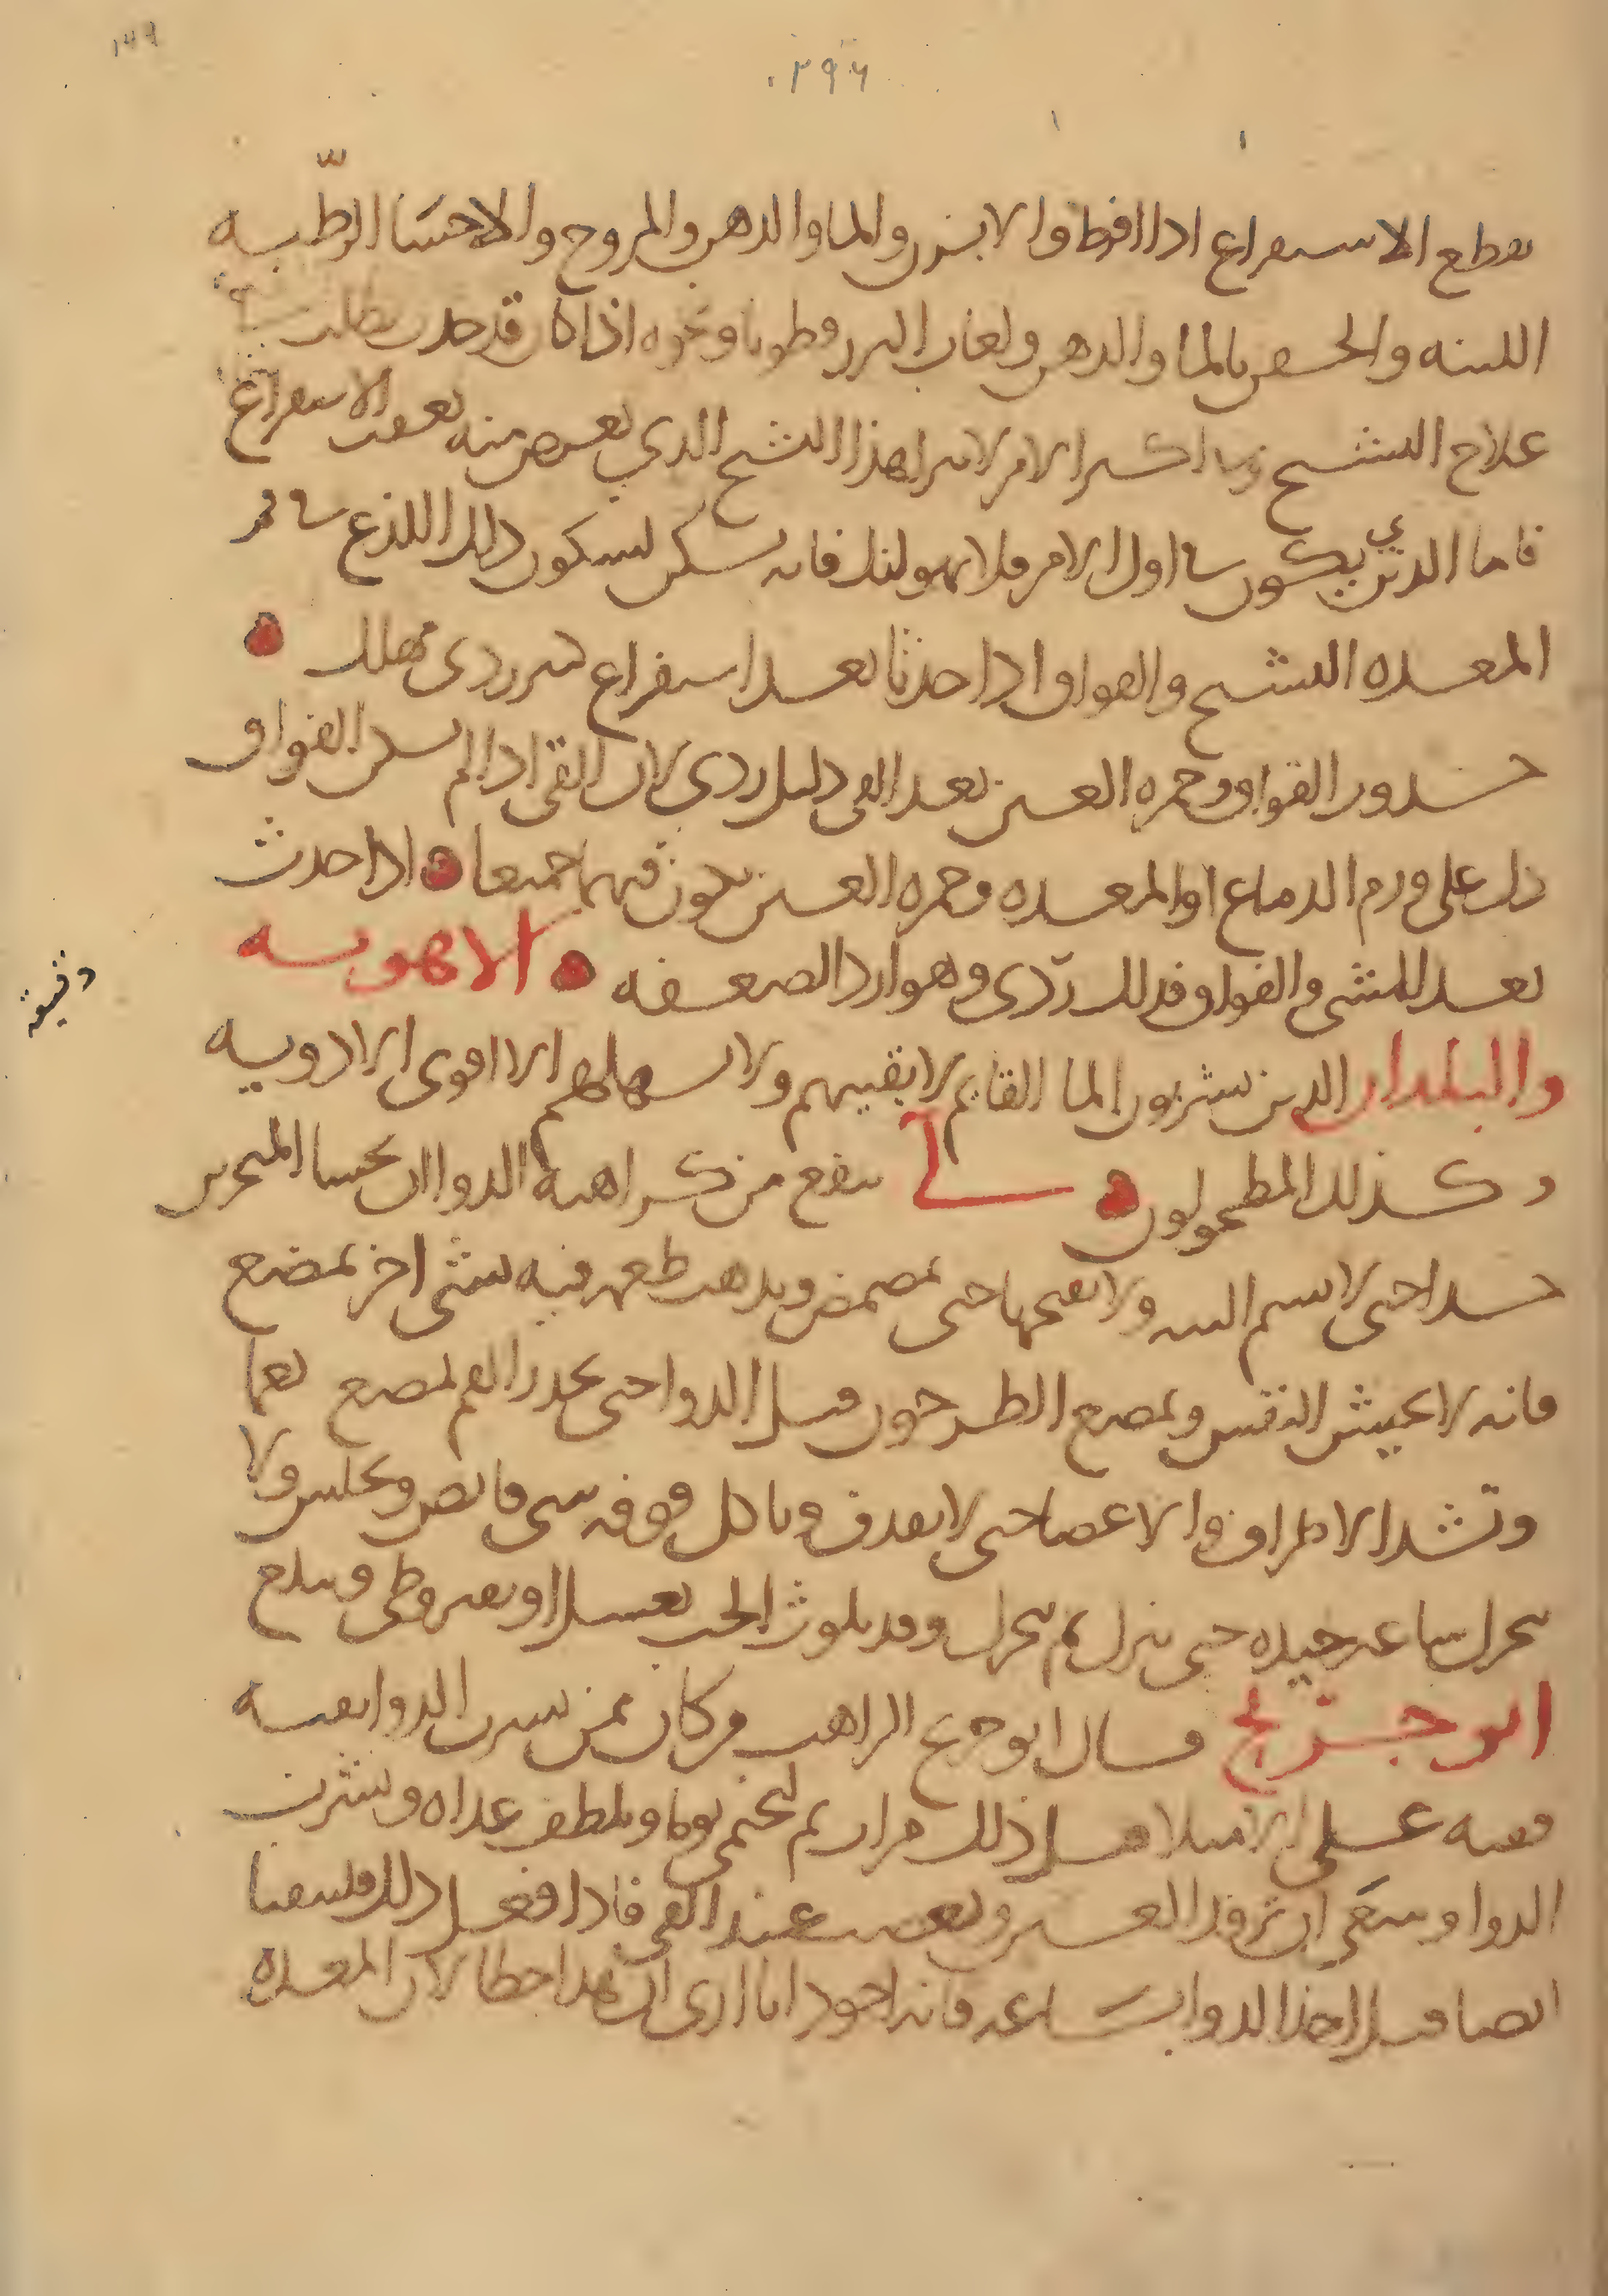 ١٤٩
٢٩٦
يقطع الاستفراغ اذا افرط والابزن والما والدهن والمروخ والاحسَا الرطّبه
اللينه والحقن بالما والدهن ولعاب البزر قطونا ونحوه اذا كان قد حدث يطلب
علاج التشنج في اكثر الامر لا يبرا هذا التشنج الذي يعرض منه بعقب الاستفراغ
فاما الذي يكون في اول الامر فلا يهولنك فانه يسكن لسكون ذلك اللذع في فم
المعده التشنج والفواق اذا حدثا بعد استفراغ كثير ردى مهلك
حدور الفواق وحمره العين بعد القى دليل ردى لان القى اذا لم يسكن الفواق
دل على ورم الدماغ او المعده وحمره العين يكون فيهما جميعا اذا حدث
بعد المشى والفواق فذلك ردى وهو اردا لضعفه الاهويه
والبلدان الذين يشربون الما القايم لا يقيهم ولا يسهلهم الا اقوى الادويه
وكذلك المطحولون لى ينفع من كراهه الدوا ان يحسا المنخرين
جدا حتى لا يشم البته ولا يفتحها حتى يمضمض ويذهب طعمه فيه بشى اخر يمضغ
فانه لا يجيش النفس ويمضغ الطرخون قبل الدوا حتى يخدر الفم يمضغ نعما
وتشد الاطراف والاعضا حتى لا يقذف وياكل فوقه شى قابض ويجلس ولا
يتحرك ساعه جيده حتى ينزل ثم يتحرك وقد يلوث الحب بعسل او بقيروطى ويبلع
ابو جريج قال ابو جريج الراهب من كان ممن يشرب الدوا يقيه
فقيه على الامتلا قبل ذلك مرار ثم لتحتمى يوما ويلطف غداه ويشرب
الدوا وينبغي ان ترفد العين وتعصب عند القى فاذا فعل ذلك فليتقيا
ايضا قبل اخذ الدوا بسَاعه فانه اجود انا ارى ان هذا خطا لان المعده